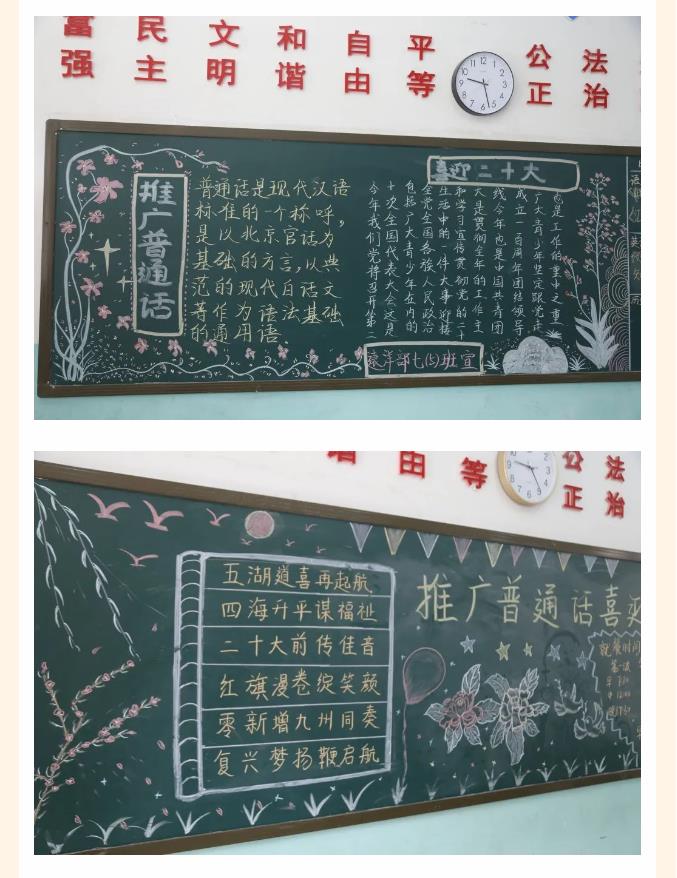 富强 民主 文明 和谐 自由 平等 公正 法治
推广普通话
普通话是现代汉语
标准的一个称呼,
是以北京官话为
基础的方言,以典
范的现代白话文
等作为语法基础
的通用语.
喜迎二十大
今年我们党将召开第二
十次全国代表大会这是
包括广大青少年在内的
全党全国各族人民政治
生活中的一件大事迎接
和学习宣传贯彻党的二十
大是贯彻全年的工作主
线今年也是中国共青团
成立一百周年团结领导
广大青少年坚定跟党走
也是工作的重中之重
七(5)班宣
由 等 公正 法治
五湖道喜再起航
四海升平谋福祉
二十大前传佳音
红旗漫卷绽笑颜
零新增九州同奏
复兴梦扬鞭启航
推广普通话喜迎